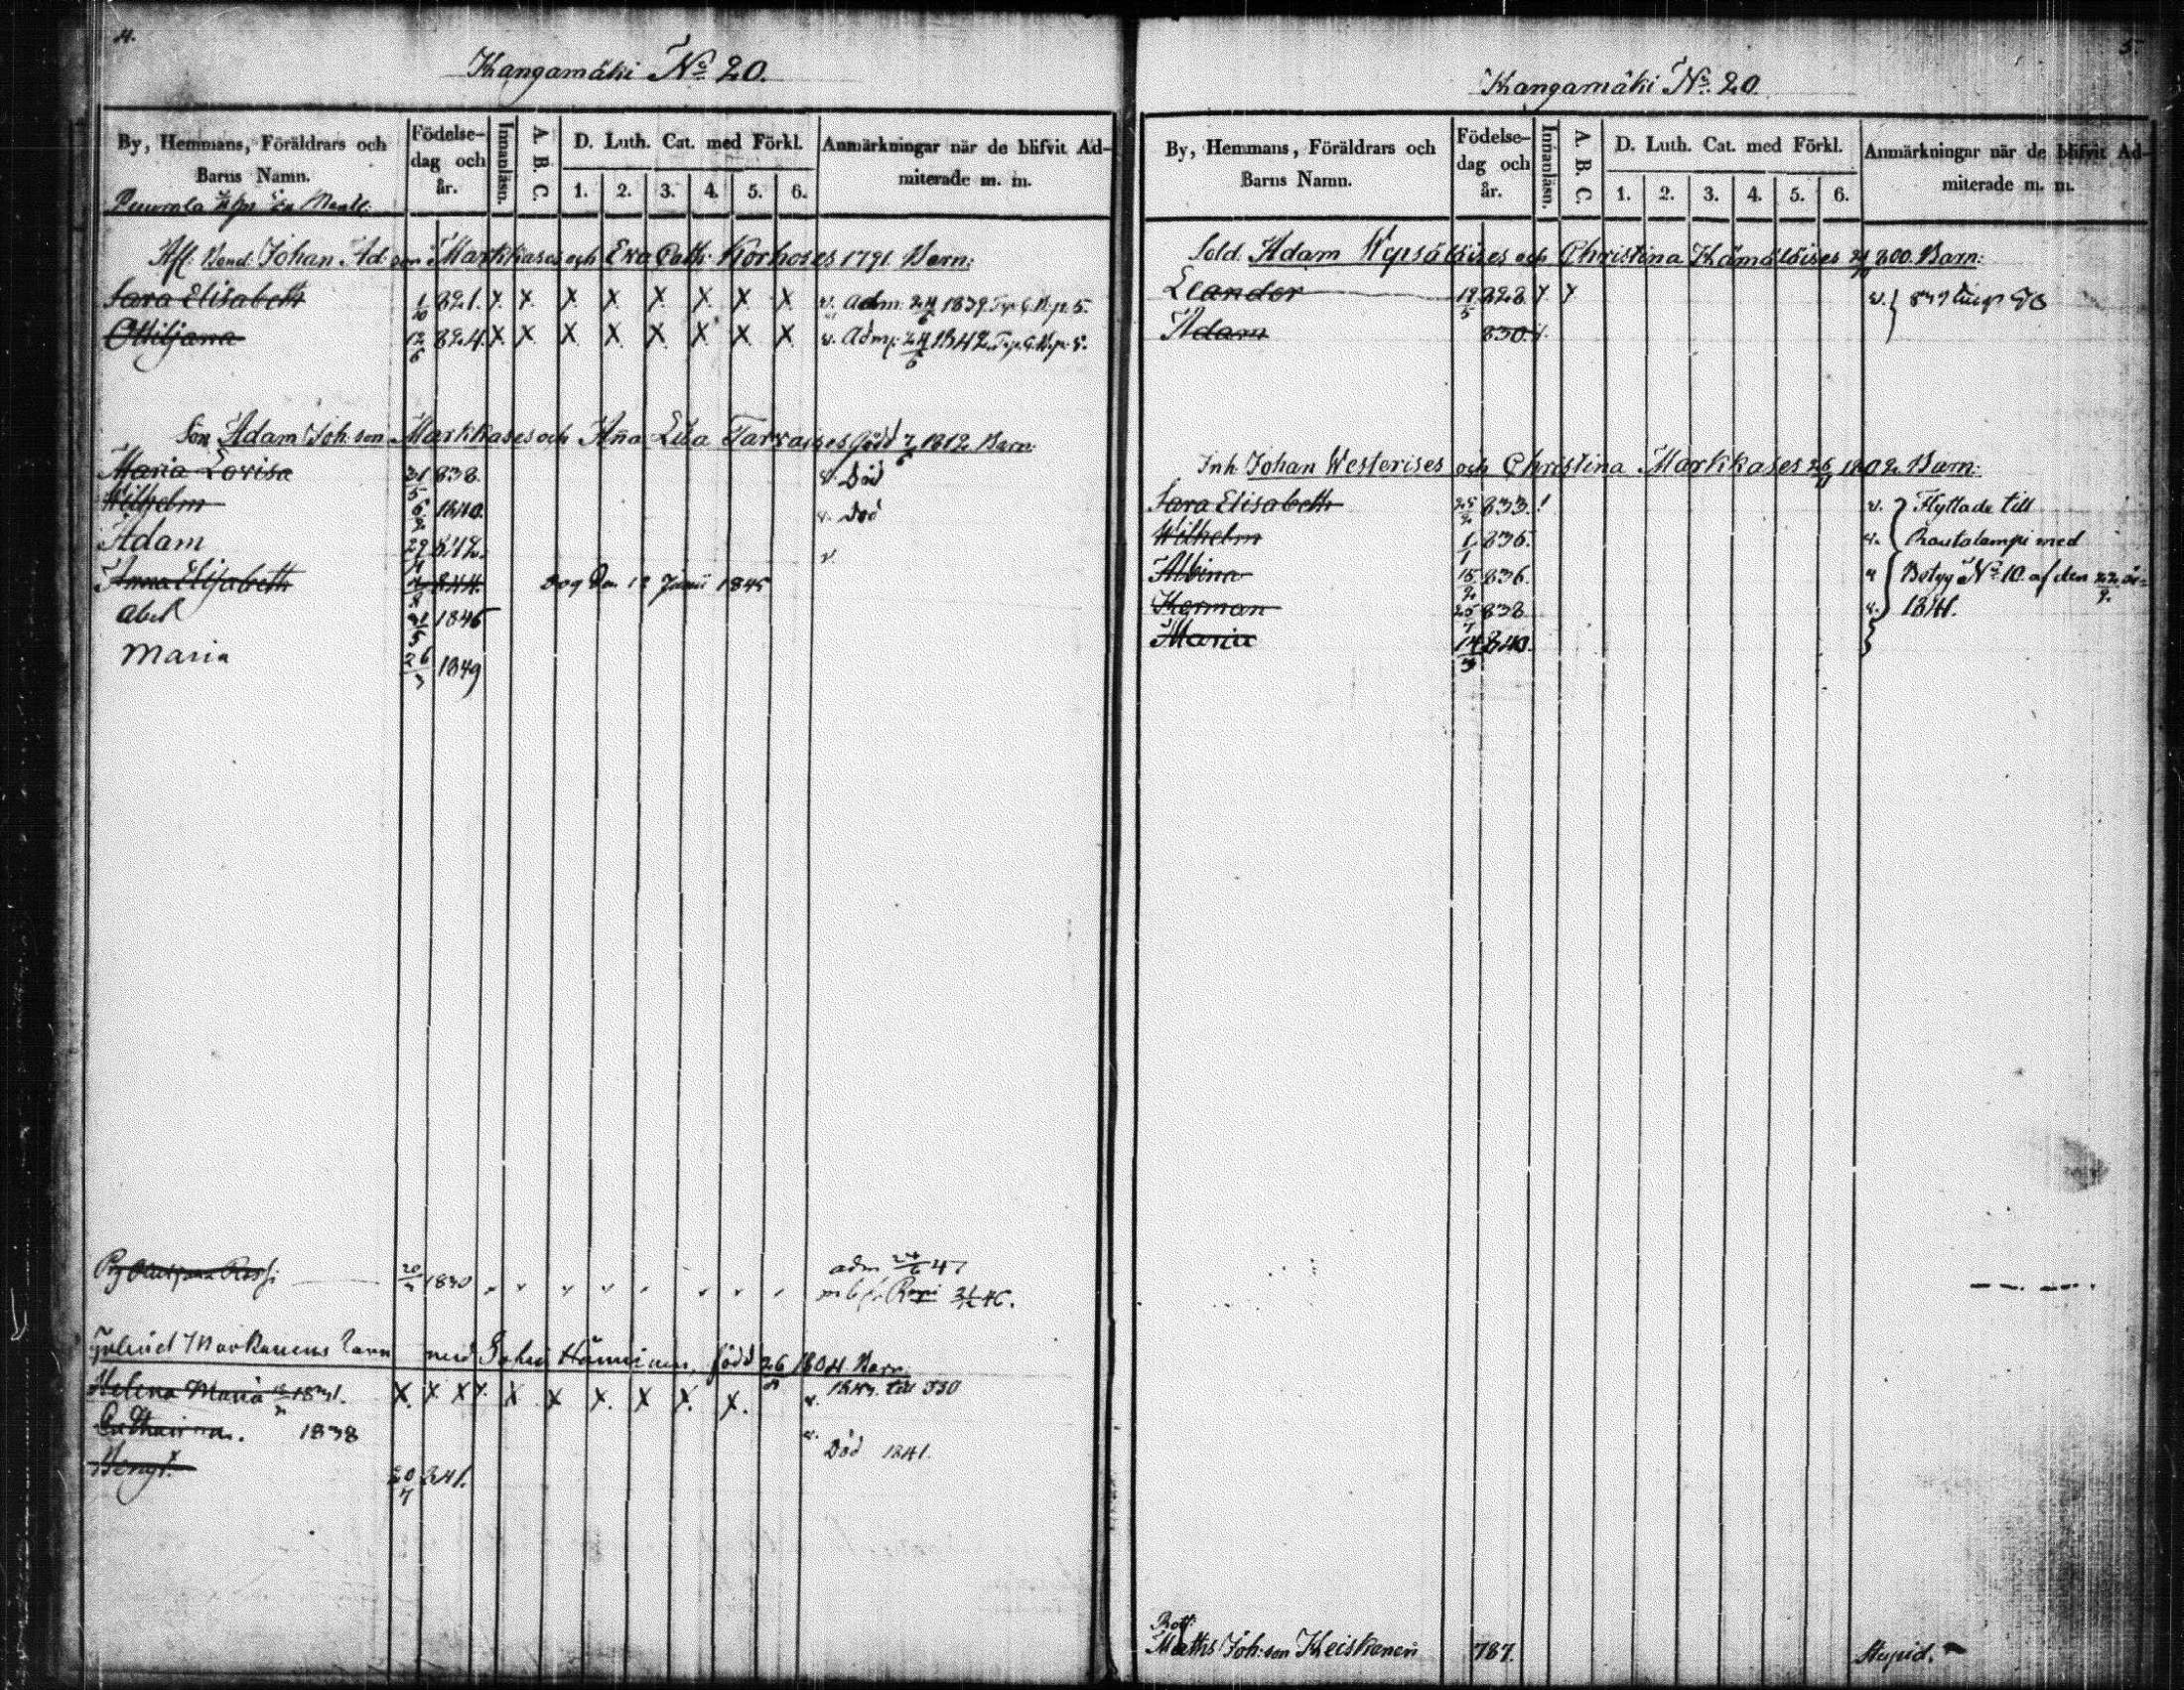 4.
Kangamäki No 20.
By, Hemmans, Föräldrars och Barns Namn.
Födelse-dag och år.
Innanläsn.
A. B. C.
D. Luth. Cat. med Förkl.
1. 2. 3. 4. 5. 6.
Anmärkningar när de blifvit Admiterade m. m.
Johan Ad: son Markkases och Eva Cath: Korhoses 1791. Barn:
Sara Elisabeth 1/10 821. X X X X X X X X v. adm. 24/6 1839.
Ottiljana 12/6 824. X X X X X X X X v. Adm: 24/6 1842.
Son Adam Joh: son Markkases och Aña Lisa Tarvaises född 7/6 1812. Barn:
Maria Lovisa 31/5 838. v. Död
Wilhelm 6/2 1840. v. Död
Adam 29/4 842. v.
Anna Elisabeth 844. dog den 12 Junii 1845
Abel 21/5 1846
Maria 26/3 1849
1830 adm 24/6 47
född 26 1804. Barn:
Helena Maria X. X X X. X X X. X X. X. v.
Catharina. 1838 v. Död 1841.
Bengt. 20/7 841.
5
Kangamäki No. 20
By, Hemmans, Föräldrars och Barns Namn.
Födelse-dag och år.
Innanläsn.
A. B. C.
D. Luth. Cat. med Förkl.
1. 2. 3. 4. 5. 6.
Anmärkningar när de blifvit Admiterade m. m.
Sold. Adam Wepsäläises och Christina Hämäläises 800. Barn:
Leander 19/5 828 v.
Adam 830.
Inh. Johan Westerises och Christina Markkases 1802. Barn:
Sara Elisabeth 25/2 833. v. Flyttade till
Wilhelm 1/1 836. v. Rautalampi med
Albina 15/2 836. Betyg No 10. af den 22
Herman 25/7 838 v. 1841.
Maria 14/3 840.
Maths Joh: son Heiskanen 787. Stupid.